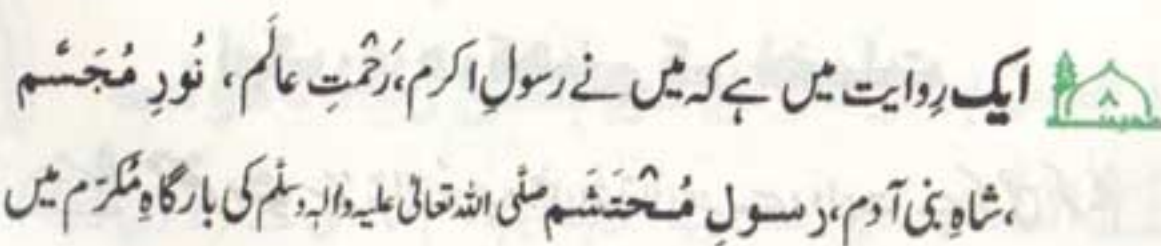 ۸ ایک رِوایت میں ہے کہ میں نے رسولِ اکرم، رَحْمتِ عالَم، نُورِ مُجَسَّم
،شاہِ بنی آدم، رسولِ مُحْتَشَم صلَّی اللہ تعالیٰ علیہ والہٖ وسلَّم کی بارگاہِ مُکرَّم میں